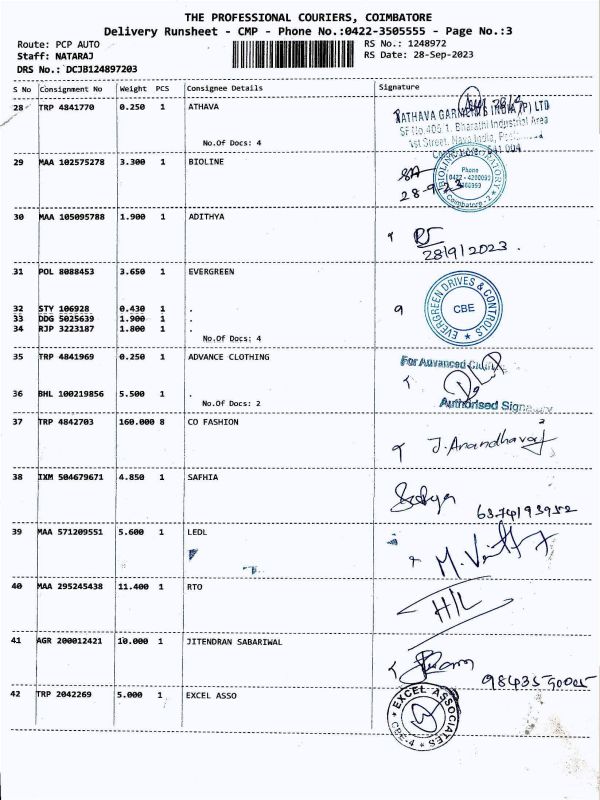 THE PROFESSIONAL COURIERS, COIMBATORE
Delivery Runsheet - CMP - Phone No.:0422-3505555 - Page No.:3
Route: PCP AUTO RS No.: 1248972
Staff: NATARAJ RS Date: 28-Sep-2023
DRS No.: DCJB124897203
S No Consignment No Weight PCS Consignee Details Signature
28 TRP 4841770 0.250 1 ATHAVA
No.Of Docs: 4
SF No 406 1, Bharathi Industrial Area
29 MAA 102575278 3.300 1 BIOLINE
Phone
0422 - 4200099
Coimbatore - 2
28-9-23
30 MAA 105095788 1.900 1 ADITHYA
28/9/2023.
31 POL 8088453 3.650 1 EVERGREEN
EVERGREEN DRIVES & CONTROLS
CBE
32 STY 106928 0.430 1 .
33 DDG 5025639 1.900 1 .
34 RJP 3223187 1.800 1 .
No.Of Docs: 4
35 TRP 4841969 0.250 1 ADVANCE CLOTHING
For Advanced
36 BHL 100219856 5.500 1 .
No.Of Docs: 2
Authorised Signatory
37 TRP 4842703 160.000 8 CO FASHION
38 IXM 504679671 4.850 1 SAFHIA
39 MAA 571209551 5.600 1 LEDL
40 MAA 295245438 11.400 1 RTO
H/L
41 AGR 200012421 10.000 1 JITENDRAN SABARIWAL
42 TRP 2042269 5.000 1 EXCEL ASSO
EXCEL ASSOCIATES
CBE-4